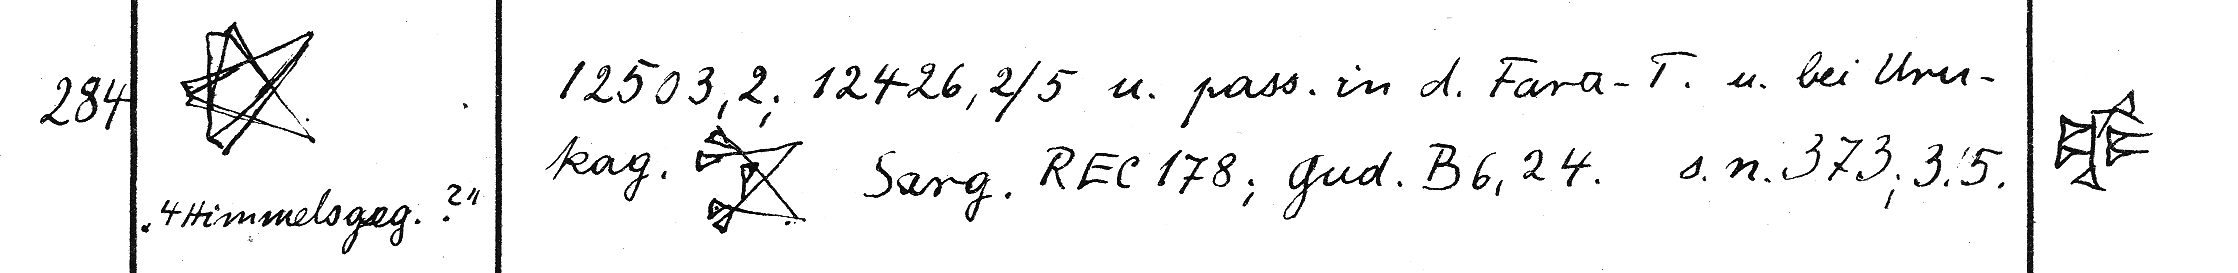 284
„4 Himmelsgeg. ?"
12503,2; 12426,2/5 u. pass. in d. Fara-T. u. bei Uru-
kag. Sarg. REC 178; Gud. B 6,24. s. n. 373; 3. 5.